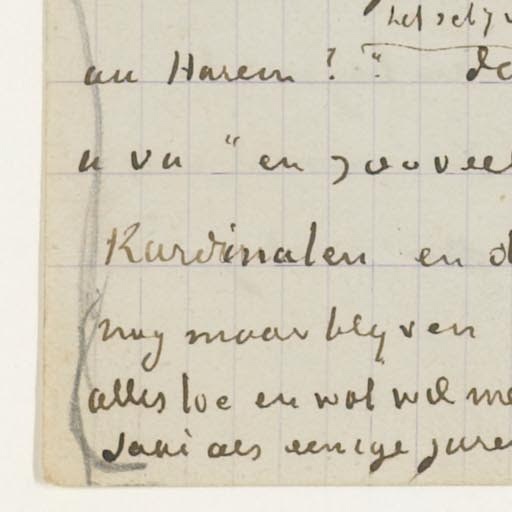 het selyv
an Harem ! " do
u vu " en zoovee
Kardinalen en d
nog maar blyven
alles loe en wat wil me
Javi als eenige jure